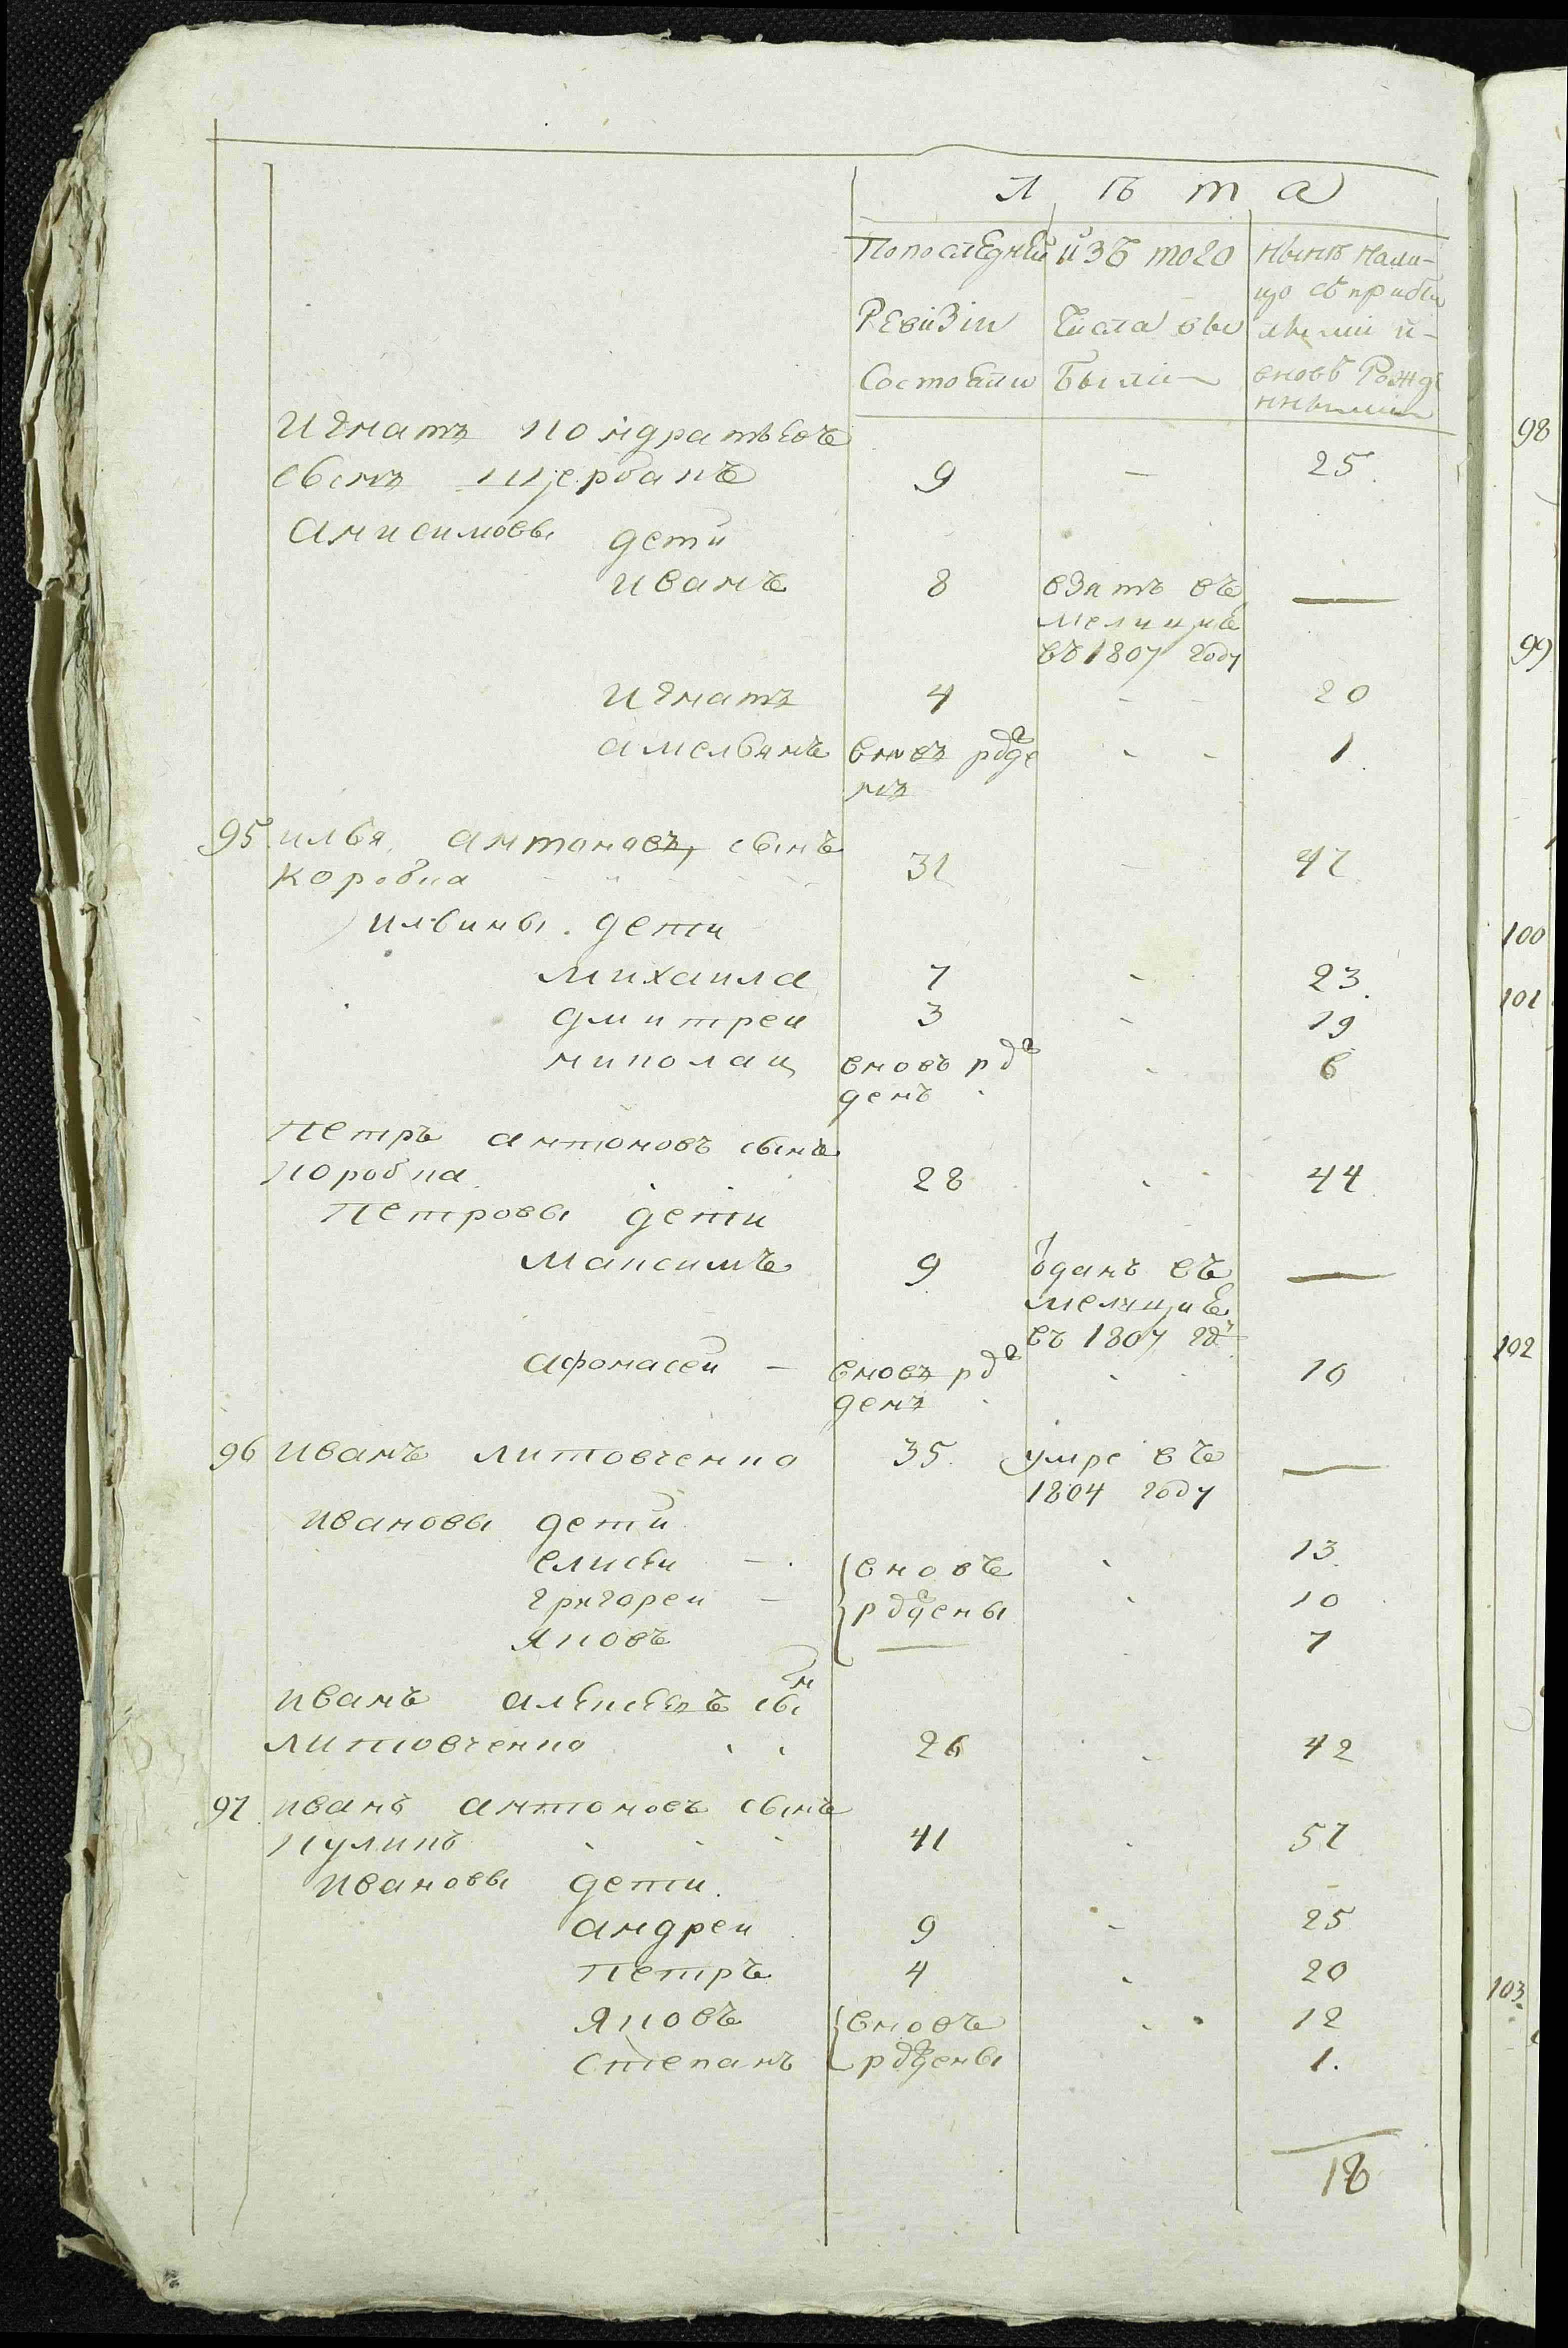 Лѣта
По последней изъ того нынѣ нали-
цо съ прибы
Ревизіи числа вы лыми и-
Состояли были вновь рожде
нными
Игнатъ кондратьевъ
сынъ щербакъ 9 — 25.
Анисимовы дети
иванъ 8 взятъ въ —
мелицию
въ 1807 году
Игнатъ 4 - - 20
амельянъ вновъ ржде - - 1
нъ
95. илья антоновъ сынъ
коробка 31 - 47
ильины дети
михаила 7 - 23.
дмитреи 3 - 19
николаи вновь рж - 6
денъ
Петръ антоновъ сынъ
коробка 28 - 44
Петровы дети
максимъ 9 отданъ въ —
мелицию
въ 1807 гд
афонасеи — вновъ рж 10
денъ
96 иванъ литовченко 35. умре въ —
1804 году
ивановы дети
елисеи — вновъ 13.
григореи — рждены 10
яковъ — 7
иванъ алексеевъ сын
литовченко 26 42
97. иванъ антоновъ сынъ
куликъ 41 57
ивановы дети
андреи 9 - 25
петръ 4 20
яковъ вновъ 12
степанъ рждены 1.
18
98
99
100
101
102
103.